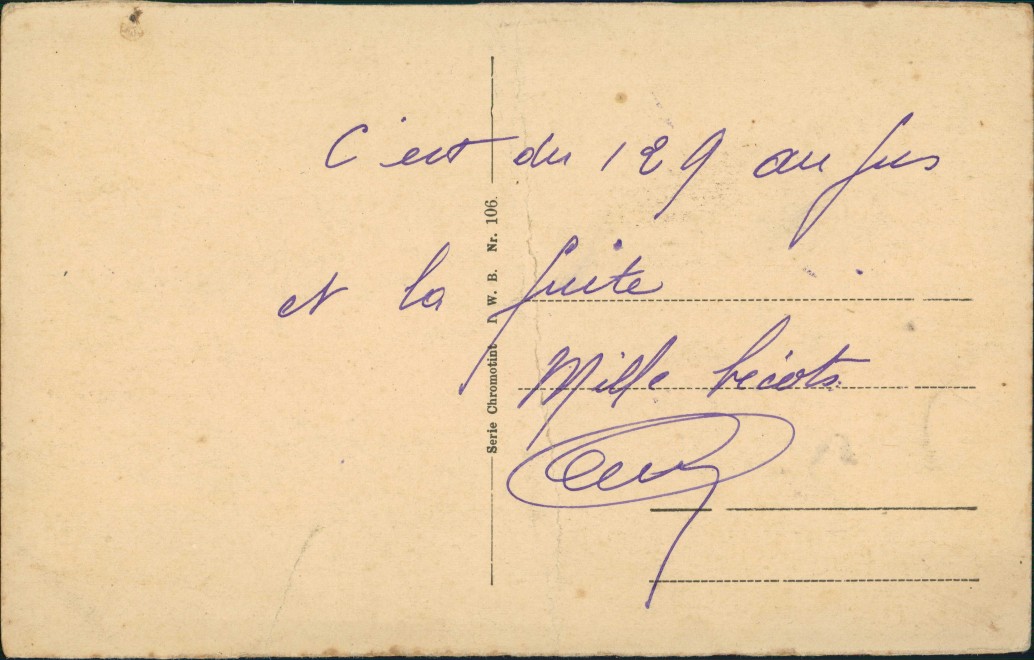 C'est du 129 au jus
et la suite
Mille bécots
Serie Chromotint P. W. B. Nr. 106.